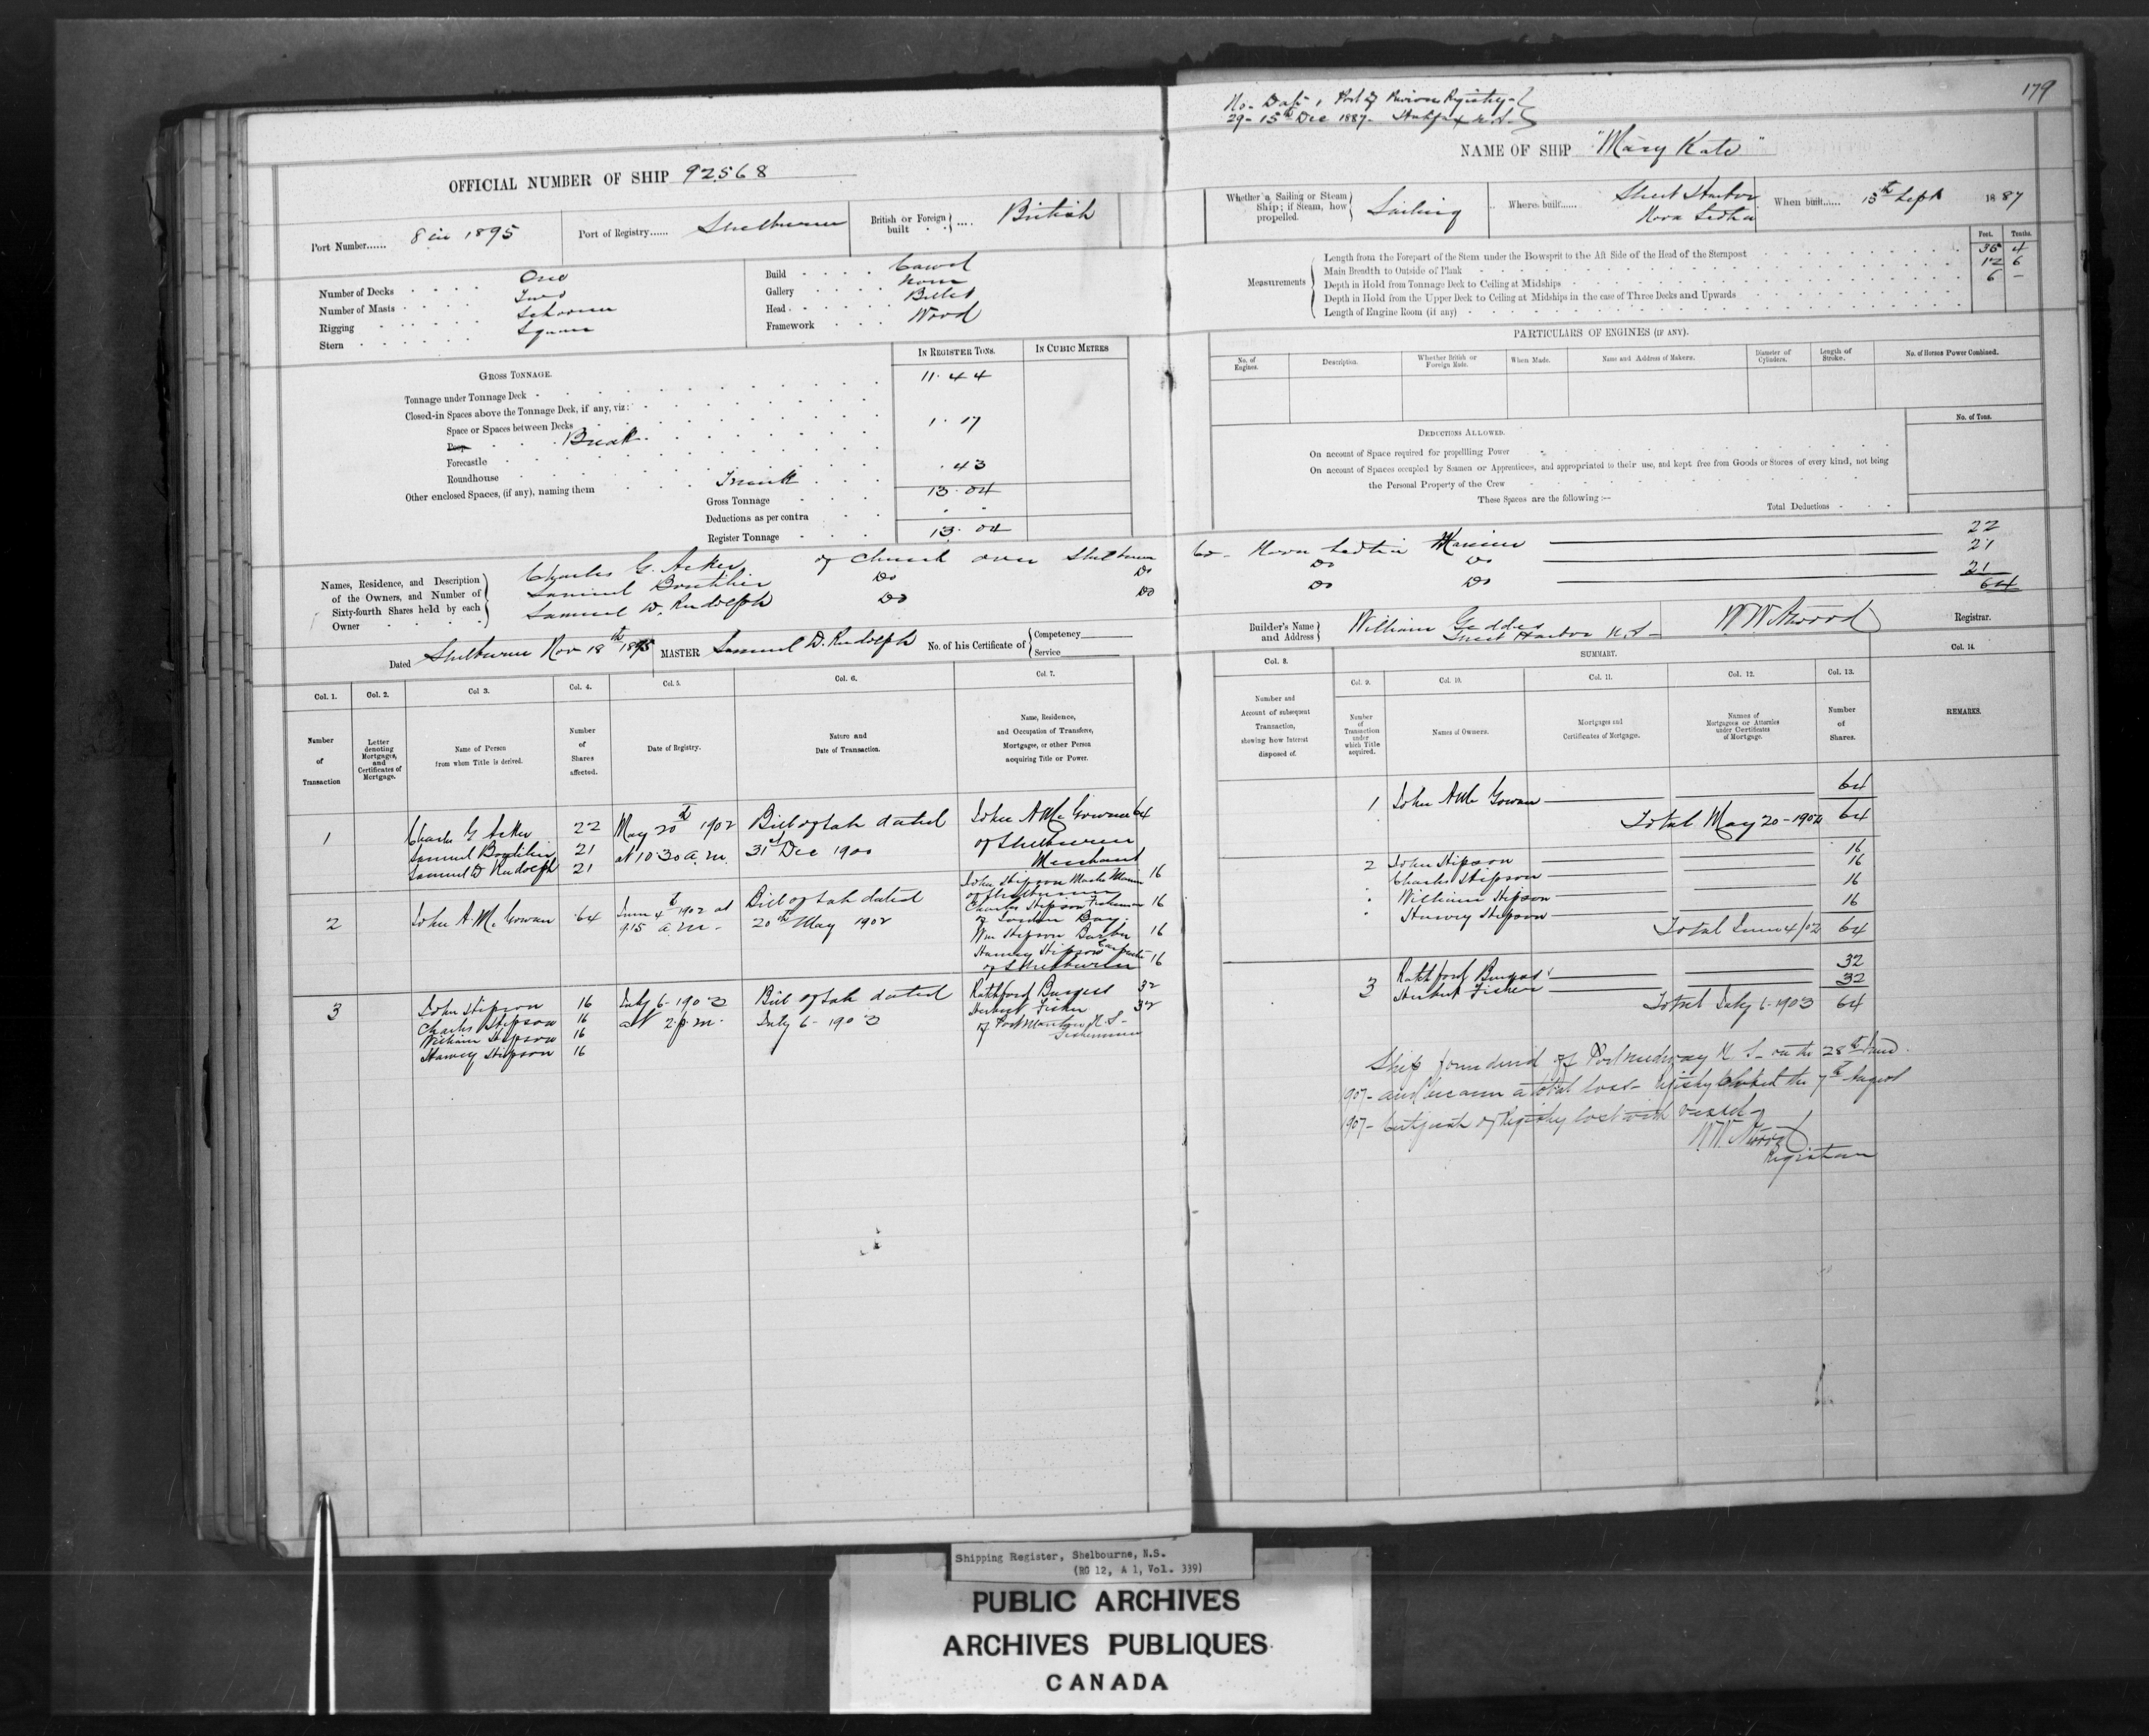 OFFICIAL NUMBER OF SHIP 92568
Port Number...... 8 in 1895
Port of Registry...... Shelburne
British or Foreign built .... British
Number of Decks One
Number of Masts Two
Rigging Schooner
Stern Square
Build Carvel
Gallery None
Head Billet
Framework Wood
IN REGISTER TONS. IN CUBIC METRES
GROSS TONNAGE.
Tonnage under Tonnage Deck 11.44
Closed-in Spaces above the Tonnage Deck, if any, viz:
Space or Spaces between Decks
Poop Break 1.17
Forecastle
Roundhouse
Other enclosed Spaces, (if any), naming them Trunk .43
Gross Tonnage 13.04
Deductions as per contra
Register Tonnage 13.04
Names, Residence, and Description of the Owners, and Number of Sixty-fourth Shares held by each Owner
Charles G. Acker of Church over Shelburne
Samuel Boutilier Do Do
Samuel D. Rudolph Do Do
Dated Shelburne Nov 18th 1895
MASTER Samuel D. Rudolph
No. of his Certificate of Competency
Service
Col. 1. Col. 2. Col 3. Col. 4. Col. 5. Col. 6. Col. 7.
Number of Transaction
Letter denoting Mortgages, and Certificates of Mortgage.
Name of Person from whom Title is derived.
Number of Shares affected.
Date of Registry.
Nature and Date of Transaction.
Name, Residence, and Occupation of Transferee, Mortgagee, or other Person acquiring Title or Power.
1 Charles G Acker 22 May 20th 1902 Bill of Sale dated John A McGowan 64
Samuel Boutilier 21 at 10.30 a.m. 31st Dec 1900 of Shelburne
Samuel D Rudolph 21 Merchant
2 John A. McGowan 64 June 4th 1902 at 9.15 a.m. Bill of Sale dated 20th May 1902
John Stipson Master Mariner 16
of Shelburne
Charles Stipson Fisherman 16
of Bay
Wm Stipson Barber 16
Harvey Stipson Carpenter
of Shelburne 16
3 John Stipson 16 July 6-1903 Bill of Sale dated Ratchford Burgess 32
Charles Stipson 16 at 2 p.m. July 6-1903 Herbert Fisher 32
William Stipson 16 of Port Mouton N.S-
Harvey Stipson 16 Fishermen
179
No- Date, Port of Previous Registry-
29- 15th Dec 1887- Halifax N.S-
NAME OF SHIP "Mary Kate"
Whether a Sailing or Steam Ship; if Steam, how propelled. Sailing
Where built...... Sheet Harbor Nova Scotia
When built...... 15th Sept 1887
Feet. Tenths.
Measurements
Length from the Forepart of the Stem under the Bowsprit to the Aft Side of the Head of the Sternpost 36 4
Main Breadth to Outside of Plank 12 6
Depth in Hold from Tonnage Deck to Ceiling at Midships 6 –
Depth in Hold from the Upper Deck to Ceiling at Midships in the case of Three Decks and Upwards
Length of Engine Room (if any)
PARTICULARS OF ENGINES (IF ANY).
No. of Engines. Description. Whether British or Foreign Made. When Made. Name and Address of Makers. Diameter of Cylinders. Length of Stroke. No. of Horses Power Combined.
No. of Tons.
DEDUCTIONS ALLOWED.
On account of Space required for propelling Power
On account of Spaces occupied by Seamen or Apprentices, and appropriated to their use, and kept free from Goods or Stores of every kind, not being
the Personal Property of the Crew
These Spaces are the following:—
Total Deductions
Co- Nova Scotia Mariner 22
Do Do 21
Do Do 21
64
Builder's Name and Address William Geddes Sheet Harbor N.S-
W.W. Atwood Registrar.
Col. 8. SUMMARY. Col. 14.
Col. 9. Col. 10. Col. 11. Col. 12. Col. 13.
Number and Account of subsequent Transaction, showing how Interest disposed of.
Number of Transaction under which Title acquired.
Names of Owners.
Mortgages and Certificates of Mortgage.
Names of Mortgagees or Attornies under Certificates of Mortgage.
Number of Shares.
REMARKS.
1 John A Mc Gowan 64
Total May 20-1902 64
2 John Stipson 16
Charles Stipson 16
William Stipson 16
Harvey Stipson 16
Total June 4/02 64
3 Ratchford Burgess 32
Herbert Fisher 32
Total July 6-1903 64
Ship foundered off Port Medway N.S- on the 28th
1907- and became a total loss- registry closed the 7th August
1907- Certificate of Registry lost with vessel-
W.W. Atwood
Registrar
Shipping Register, Shelbourne, N.S.
(RG 12, A 1, Vol. 339)
PUBLIC ARCHIVES
ARCHIVES PUBLIQUES
CANADA